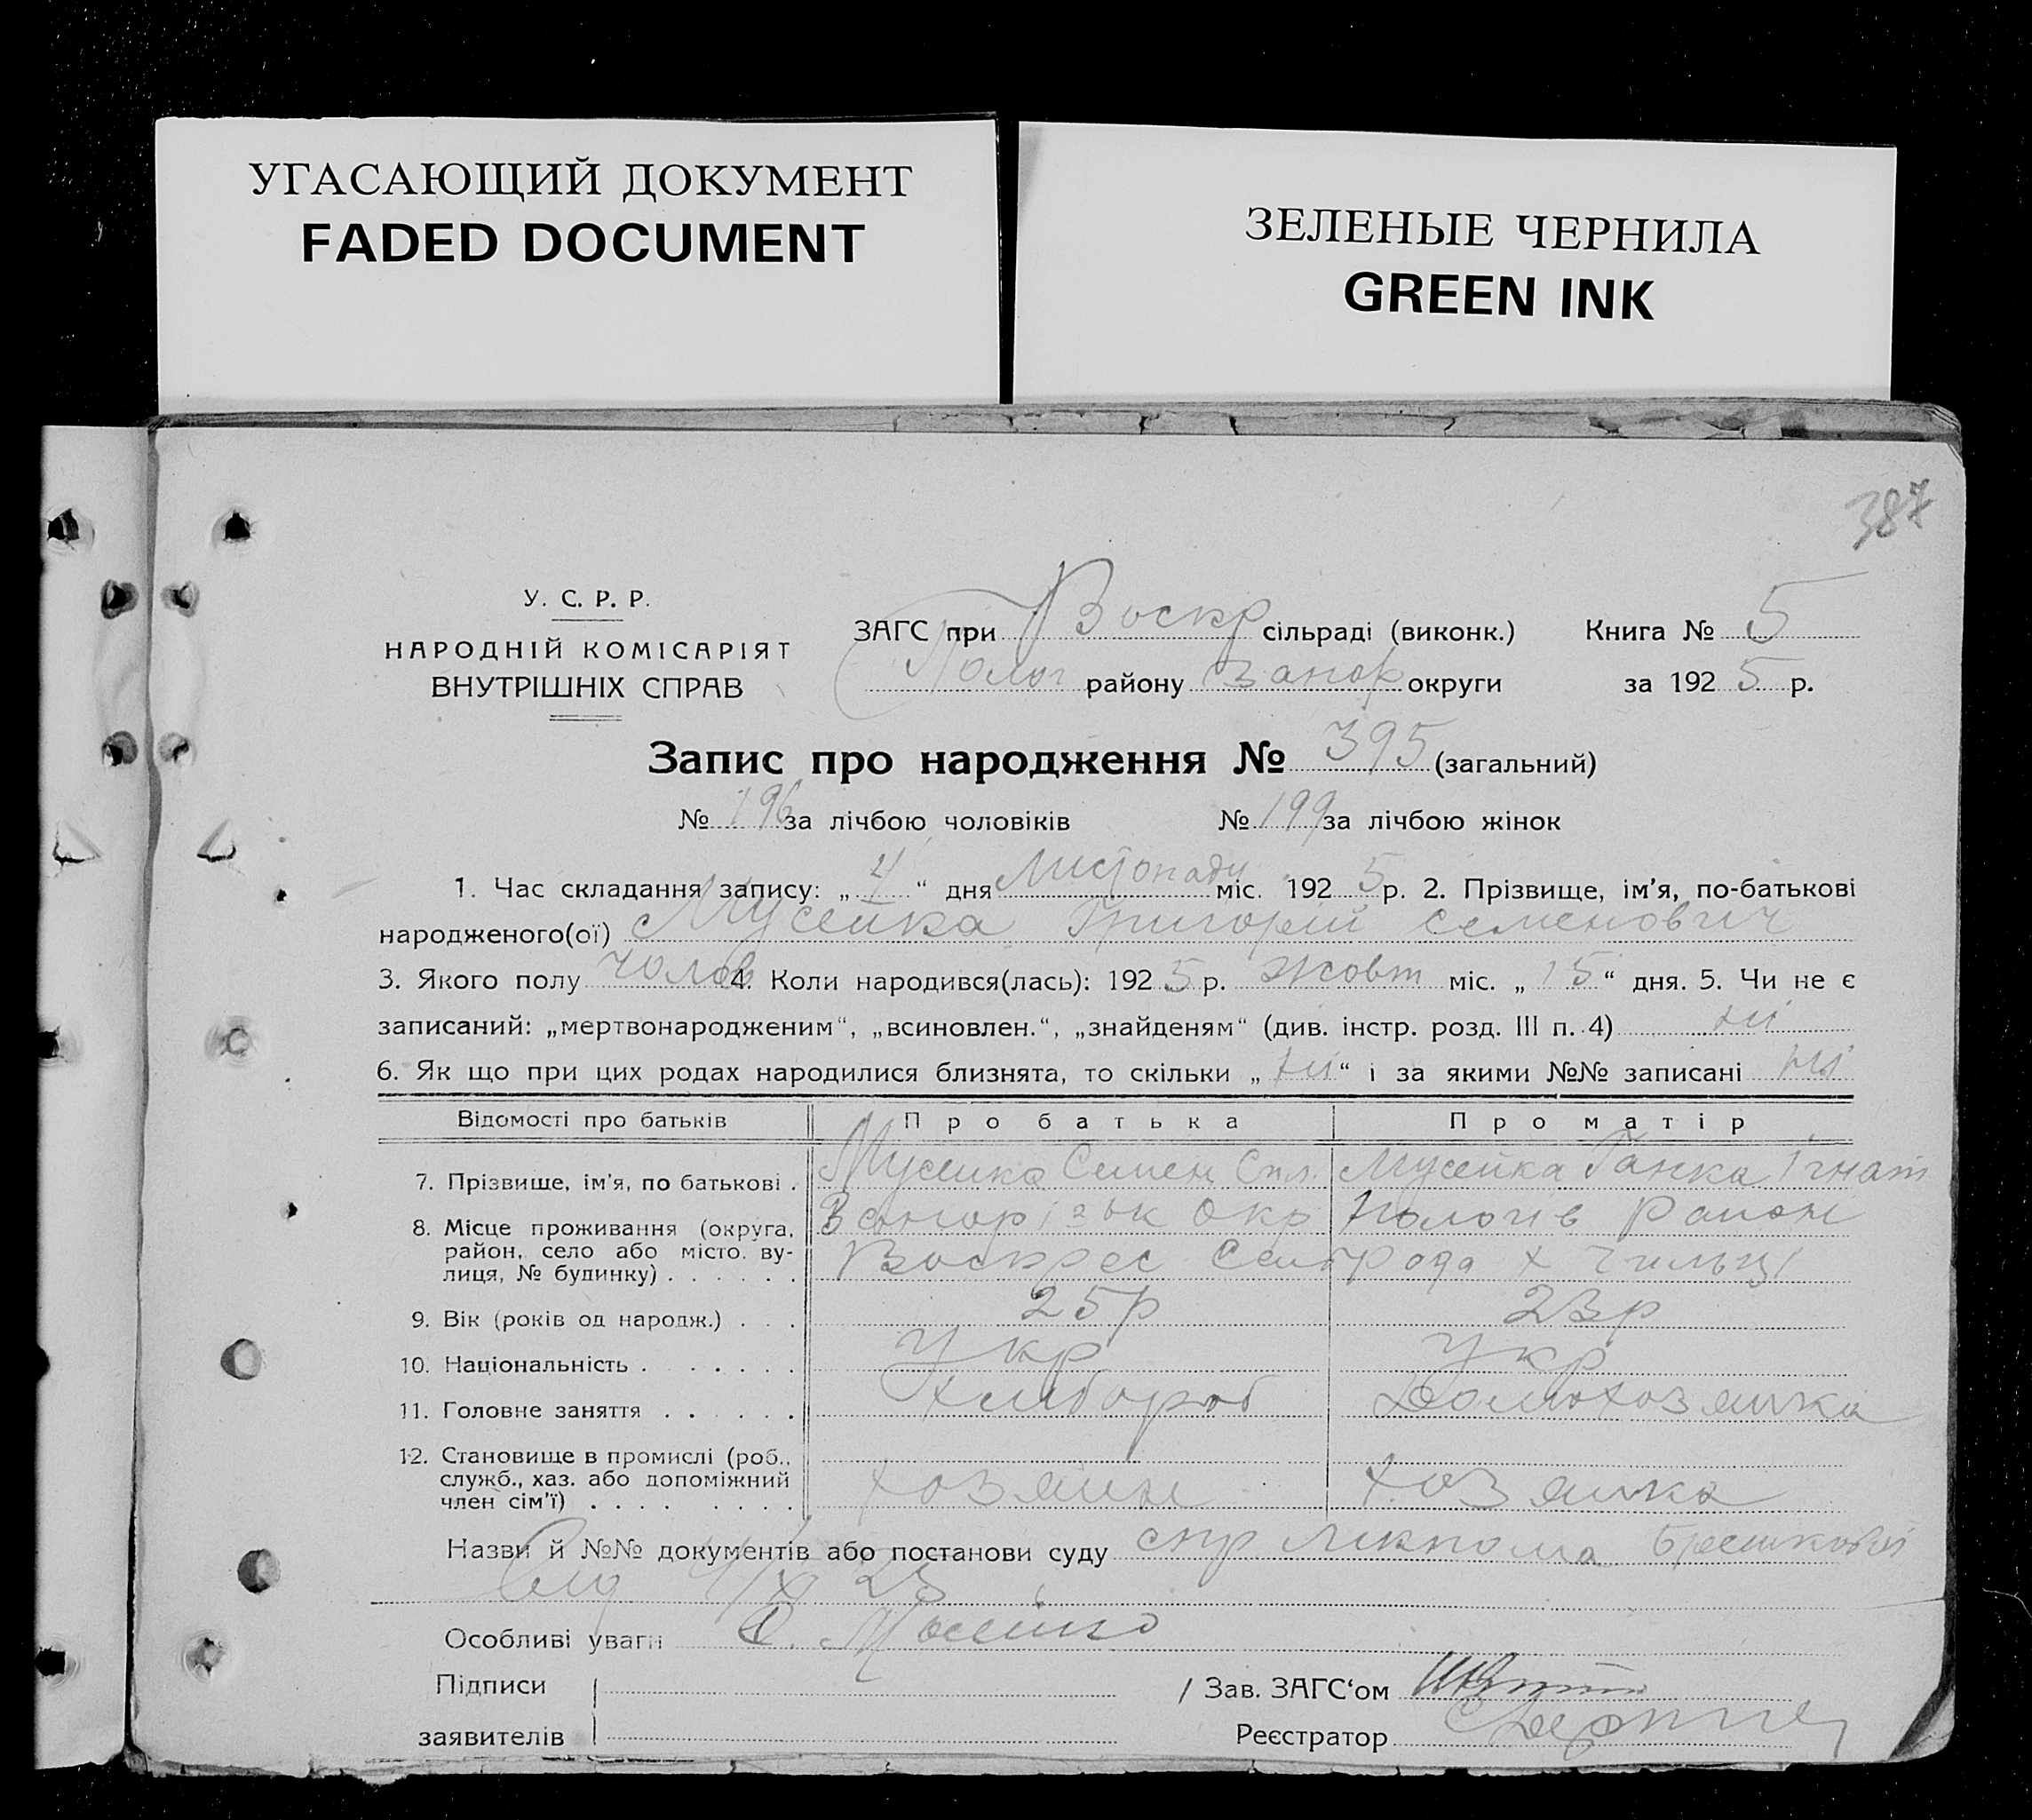 УГАСАЮЩИЙ ДОКУМЕНТ
FADED DOCUMENT
ЗЕЛЕНЫЕ ЧЕРНИЛА
GREEN INK
387
У. С. Р. Р.
НАРОДНІЙ КОМІСАРІЯТ
ВНУТРІШНІХ СПРАВ
ЗАГС при Воскр сільраді (виконк.) Книга № 5
Полог району Запор округи за 1925 р.
Запис про народження № 395 (загальний)
№ 196 за лічбою чоловіків № 199 за лічбою жінок
1. Час складання запису: „4“ дня Листопаду міс. 1925 р. 2. Прізвище, ім'я, по-батькові
народженого(ої) Мусейка Григорій Семенович
3. Якого полу Чолов 4. Коли народився(лась): 1925 р. Жовт міс. „15“ дня. 5. Чи не є
записаний: „мертвонародженим“, „всиновлен.“, „знайденям“ (див. інстр. розд. III п. 4) ні
6. Як що при цих родах народилися близнята, то скільки „ні“ і за якими №№ записані ні
Відомості про батьків Про батька Про матір
7. Прізвище, ім'я, по батькові . Мусейка Семен Мусейка Ганка Ігнат
8. Місце проживання (округа, район, село або місто, вулиця, № будинку) . . . . . .
Окр Пологів Район
Воскрес х
9. Вік (років од народж.) . . . 25р 23р
10. Національність . . . . . . Укр Укр
11. Головне заняття . . . . . . Хлібороб Домохозяйка
12. Становище в промислі (роб., служб., хаз. або допоміжний член сім'ї) . . . . . . . . хозяин хозяйка
Назви й №№ документів або постанови суду спр Лікпома
25
Особливі уваги Мосейко
Підписи
заявителів
Зав. ЗАГС‘ом
Реєстратор